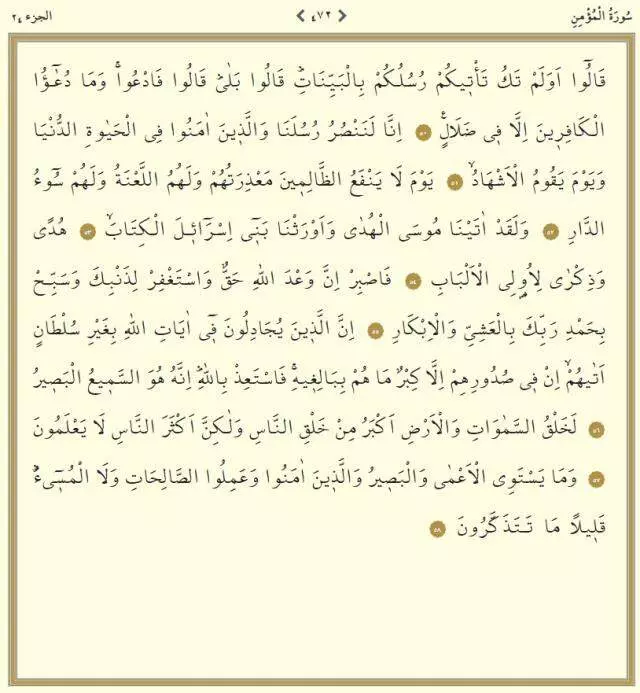 سُورَةُ الْمُؤْمِنِ ❮ ٤٧٢ ❯ الجزء ٢٤
قَالُٓوا اَوَلَمْ تَكُ تَأْت۪يكُمْ رُسُلُكُمْ بِالْبَيِّنَاتِۜ قَالُوا بَلٰىۜ قَالُوا فَادْعُواۚ وَمَا دُعٰٓؤُا
الْكَافِر۪ينَ اِلَّا ف۪ي ضَلَالٍ۟ ﴿٥٠﴾ اِنَّا لَنَنْصُرُ رُسُلَنَا وَالَّذ۪ينَ اٰمَنُوا فِي الْحَيٰوةِ الدُّنْيَا
وَيَوْمَ يَقُومُ الْاَشْهَادُۙ ﴿٥١﴾ يَوْمَ لَا يَنْفَعُ الظَّالِم۪ينَ مَعْذِرَتُهُمْ وَلَهُمُ اللَّعْنَةُ وَلَهُمْ سُٓوءُ
الدَّارِ ﴿٥٢﴾ وَلَقَدْ اٰتَيْنَا مُوسَى الْهُدٰى وَاَوْرَثْنَا بَن۪ٓي اِسْرَٓائ۪لَ الْكِتَابَۙ ﴿٥٣﴾ هُدًى
وَذِكْرٰى لِاُو۬لِي الْاَلْبَابِ ﴿٥٤﴾ فَاصْبِرْ اِنَّ وَعْدَ اللّٰهِ حَقٌّ وَاسْتَغْفِرْ لِذَنْبِكَ وَسَبِّحْ
بِحَمْدِ رَبِّكَ بِالْعَشِيِّ وَالْاِبْكَارِ ﴿٥٥﴾ اِنَّ الَّذ۪ينَ يُجَادِلُونَ ف۪ٓي اٰيَاتِ اللّٰهِ بِغَيْرِ سُلْطَانٍ
اَتٰيهُمْۙ اِنْ ف۪ي صُدُورِهِمْ اِلَّا كِبْرٌ مَا هُمْ بِبَالِغ۪يهِۚ فَاسْتَعِذْ بِاللّٰهِۜ اِنَّهُ هُوَ السَّم۪يعُ الْبَص۪يرُ
﴿٥٦﴾ لَخَلْقُ السَّمٰوَاتِ وَالْاَرْضِ اَكْبَرُ مِنْ خَلْقِ النَّاسِ وَلٰكِنَّ اَكْثَرَ النَّاسِ لَا يَعْلَمُونَ
﴿٥٧﴾ وَمَا يَسْتَوِي الْاَعْمٰى وَالْبَص۪يرُ وَالَّذ۪ينَ اٰمَنُوا وَعَمِلُوا الصَّالِحَاتِ وَلَا الْمُس۪ٓيءُۜ
قَل۪يلًا مَا تَتَذَكَّرُونَ ﴿٥٨﴾